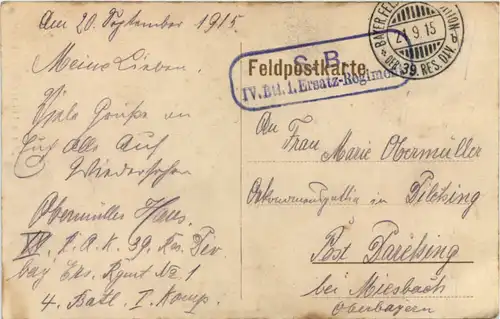 Am 20. September 1915.
Meine Lieben.
Viele Grüße an
Euch alle Auf
Wiedersehen
Obermüller Hans
39. Res. Div
bay Ers. Rgmt No 1
4. Batl. I. Komp.
S. B.
IV. Btl. 1. Ersatz-Regiment
Feldpostkarte
21.9.15
DER 39. RES. DIV.
An
Frau Marie Obermüller
in
Post
bei Miesbach
Oberbayern